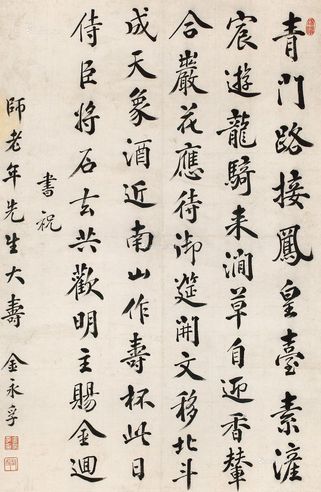 青門路接鳳皇臺素滻
宸遊龍騎来澗草自迎香輦
合巖花應待御筵開文移北斗
成天象酒近南山作壽杯此日
侍臣將石去共歡明主賜金迴
書祝
師老年先生大壽 金永孚